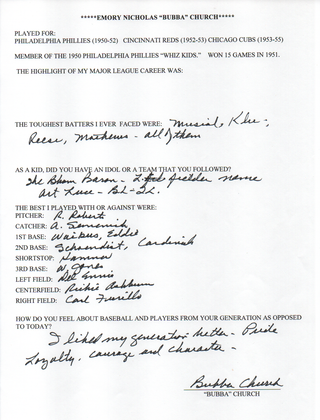 *****EMORY NICHOLAS "BUBBA" CHURCH*****
PLAYED FOR:
PHILADELPHIA PHILLIES (1950-52) CINCINNATI REDS (1952-53) CHICAGO CUBS (1953-55)
MEMBER OF THE 1950 PHILADELPHIA PHILLIES "WHIZ KIDS." WON 15 GAMES IN 1951.
THE HIGHLIGHT OF MY MAJOR LEAGUE CAREER WAS:
THE TOUGHEST BATTERS I EVER FACED WERE: Musial, Klu-,
Reese, Mathews - all of them
AS A KID, DID YOU HAVE AN IDOL OR A TEAM THAT YOU FOLLOWED?
The Bham Baron - fielder name
Art Luce -
THE BEST I PLAYED WITH OR AGAINST WERE:
PITCHER: R. Robert
CATCHER: A. Semenick
1ST BASE: Waitkus, Eddie
2ND BASE: Schoendist, Cardinals
SHORTSTOP: Hamner
3RD BASE: W. Jones
LEFT FIELD: Del Ennis
CENTERFIELD: Richie Ashburn
RIGHT FIELD: Carl Furillo
HOW DO YOU FEEL ABOUT BASEBALL AND PLAYERS FROM YOUR GENERATION AS OPPOSED
TO TODAY?
I liked my generation better - Pride
Loyalty, courage and character -
Bubba Church
"BUBBA" CHURCH